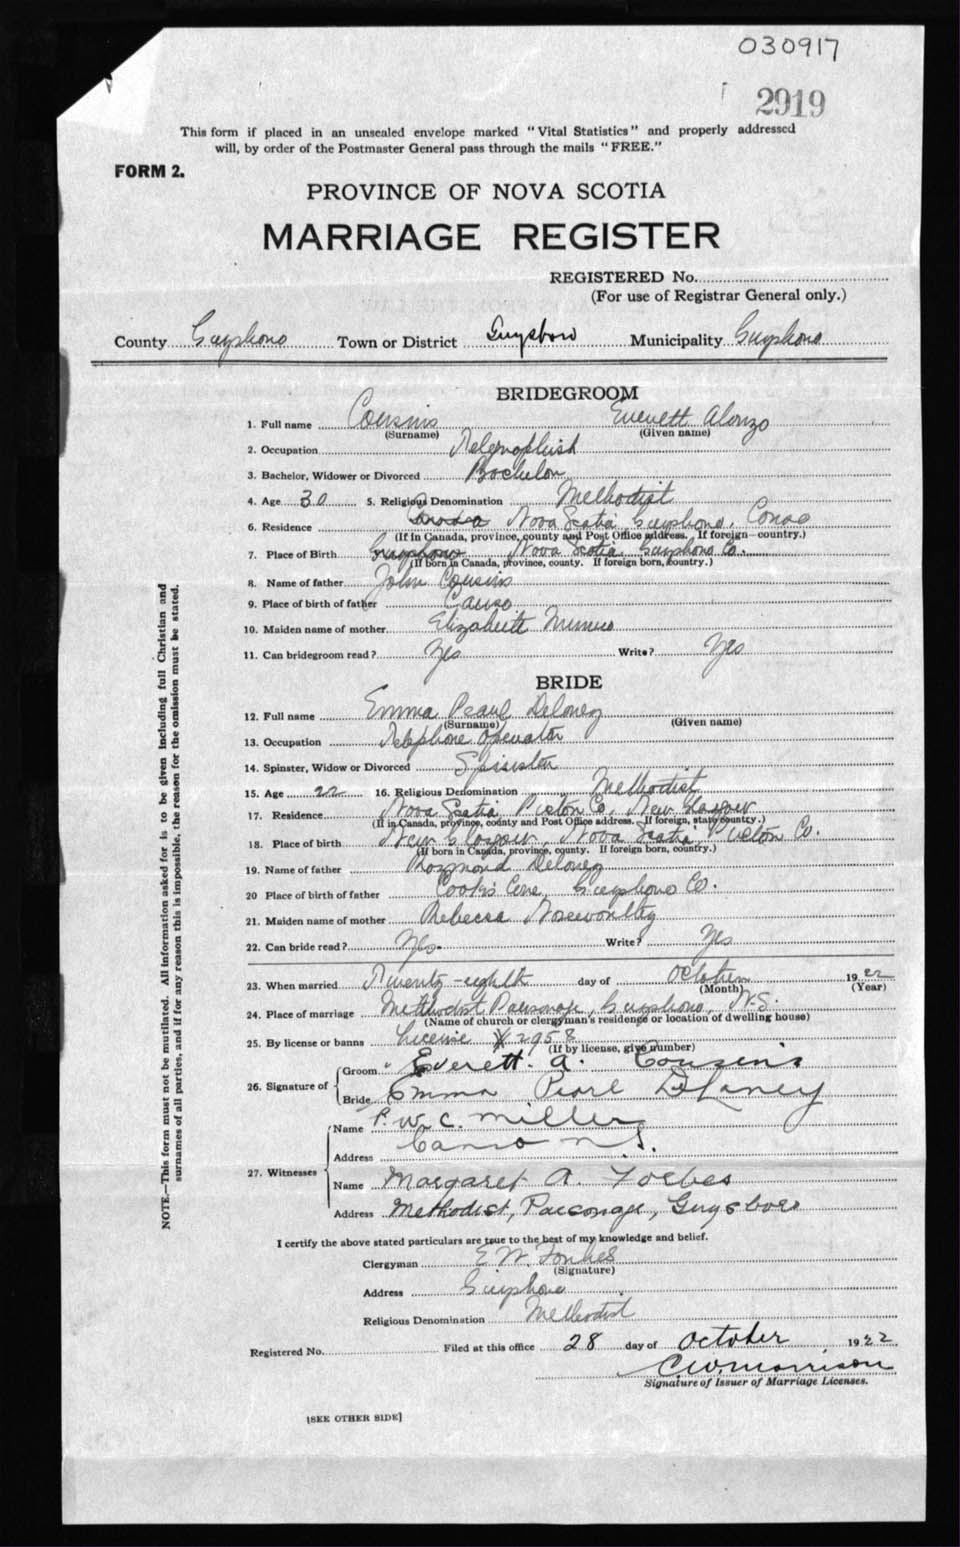 030917
2919
This form if placed in an unsealed envelope marked "Vital Statistics" and properly addressed
will, by order of the Postmaster General pass through the mails "FREE."
FORM 2.
PROVINCE OF NOVA SCOTIA
MARRIAGE REGISTER
REGISTERED No.
(For use of Registrar General only.)
County Guysboro Town or District Guysboro Municipality Guysboro
BRIDEGROOM
1. Full name Cousins Everett Alonzo
(Surname) (Given name)
2. Occupation Telegraphist
3. Bachelor, Widower or Divorced Bachelor
4. Age 30 5. Religious Denomination Methodist
6. Residence Nova Scotia, Guysboro, Canso
(If in Canada, province, county and Post Office address. If foreign—country.)
7. Place of Birth Nova Scotia, Guysboro Co.
(If born in Canada, province, county. If foreign born, country.)
8. Name of father John Cousins
9. Place of birth of father Canso
10. Maiden name of mother Elizabeth
11. Can bridegroom read? Yes Write? Yes
BRIDE
12. Full name Emma Pearl Deloney
(Surname) (Given name)
13. Occupation Telephone Operator
14. Spinster, Widow or Divorced Spinster
15. Age 22 16. Religious Denomination Methodist
17. Residence Nova Scotia, Pictou Co, New Glasgow
(If in Canada, province, county and Post Office address. If foreign, state country.)
18. Place of birth New Glasgow, Nova Scotia, Pictou Co.
(If born in Canada, province, county. If foreign born, country.)
19. Name of father Raymond Deloney
20 Place of birth of father Cook's Cove, Guysboro Co.
21. Maiden name of mother Rebecca
22. Can bride read? Yes. Write? Yes
23. When married Twenty-eighth day of October 1922
(Month) (Year)
24. Place of marriage Methodist Parsonage, Guysboro, N.S.
(Name of church or clergyman's residence or location of dwelling house)
25. By license or banns License 2958
(If by license, give number)
26. Signature of
Groom Everett. A. Cousins
Bride Emma Pearl DLaney
27. Witnesses
Name P. W. C. Miller
Address Canso N.S.
Name Margaret A. Forbes
Address Methodist, Parsonage, Guysboro
I certify the above stated particulars are true to the best of my knowledge and belief.
Clergyman E W. Forbes
(Signature)
Address Guysboro
Religious Denomination Methodist
Registered No. Filed at this office 28 day of October 1922
C.W. Morrison
Signature of Issuer of Marriage Licenses.
[SEE OTHER SIDE]
NOTE.—This form must not be mutilated. All information asked for is to be given including full Christian and
surnames of all parties, and if for any reason this is impossible, the reason for the omission must be stated.